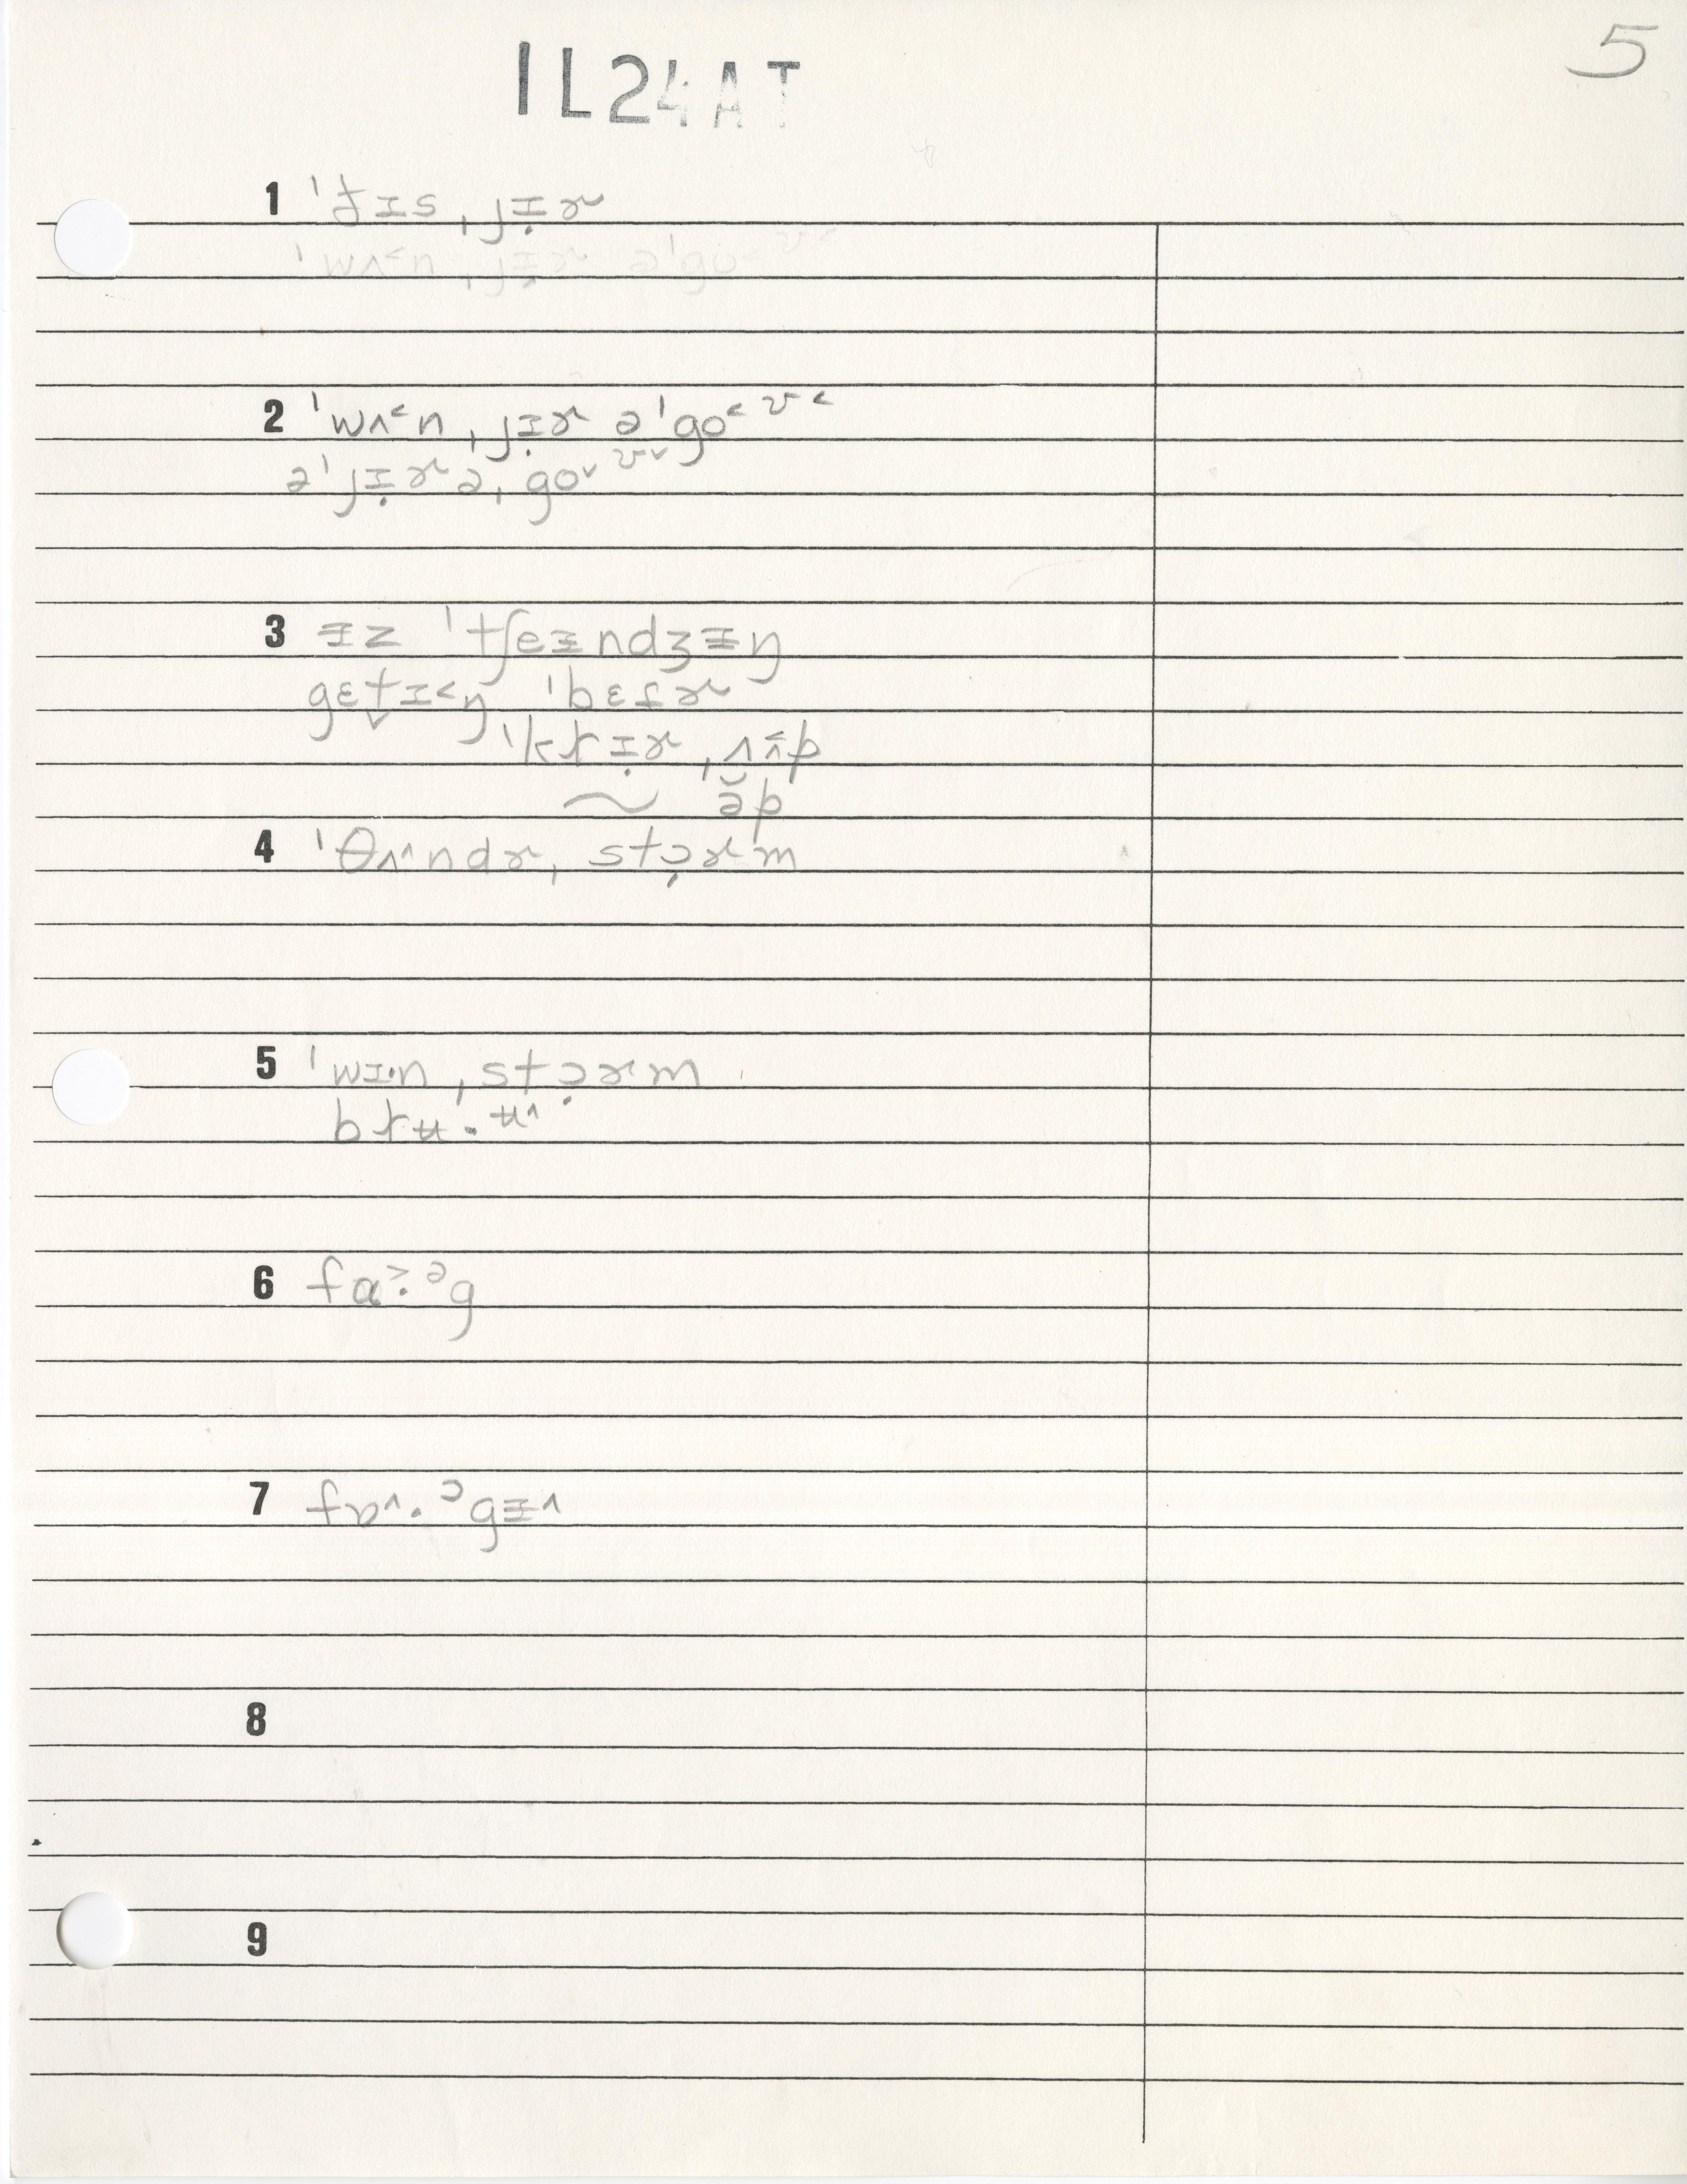 IL24AT
5
1 ˈðɪs ˌjɪ̣ɚ
ˈwʌ˂n ˌjɪ̣ɚ əˈgo˂ʊ˂
2 ˈwʌ˂n ˌjɪ̣ɚ əˈgo˂ʊ˂
əˈjɪ̣ɚəˌgo˅ʊ˅
3 ɪz ˈtʃeɪndʒɪŋ
gɛt̬ɪ˂ŋ ˈbɛɾɚ
ˈkɹɪ̣ɚ ˌʌʌ̂p
~ ə̆p
4 ˈθʌ˄ndɚ ˌstɔ̣ɚm
5 ˈwɪ·n ˌstɔ̣ɚm
bɹʉ·ʉ˄
6 fɑ˃·ᵊg
7 fɒ˄·ᵓgɪ˄
8
9